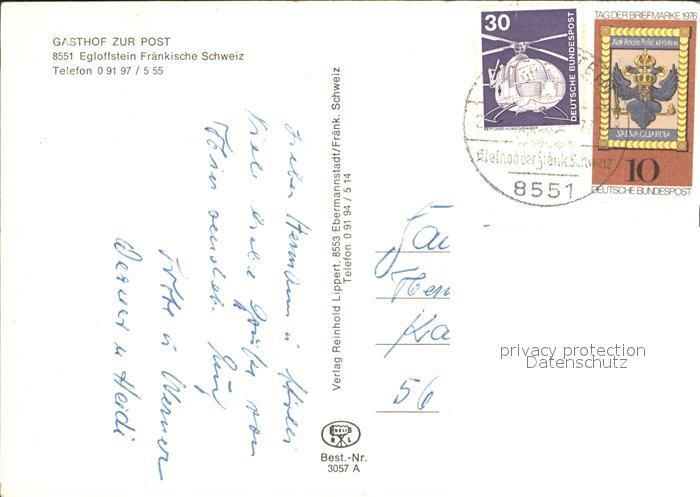 GASTHOF ZUR POST
8551 Egloffstein Fränkische Schweiz
Telefon 0 91 97 / 5 55
30
DEUTSCHE BUNDESPOST
TAG DER BRIEFMARKE 1976
SALVA GUARDIA
10
DEUTSCHE BUNDESPOST
Kleinod der Fränk. Schweiz
8551
Lieber Hermann u
Viele liebe Grüße von
hier sendet Euch
Werner
Werner u Heidi
Verlag Reinhold Lippert, 8553 Ebermannstadt/Fränk. Schweiz
Telefon 0 91 94 / 5 14
Fam
Her
Ka
56
privacy protection
Datenschutz
R L
Best.-Nr.
3057 A